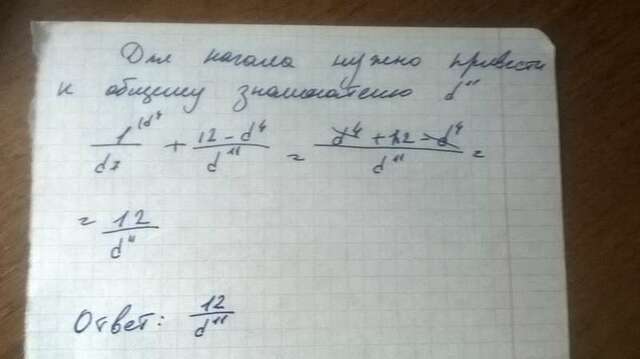 Для начала нужно привести
к общему знаменателю d¹¹
1^(d⁴ / d7 + 12 - d⁴ / d¹¹ = d⁴ + 12 - d⁴ / d¹¹ =
= 12 / d¹¹
Ответ: 12 / d¹¹